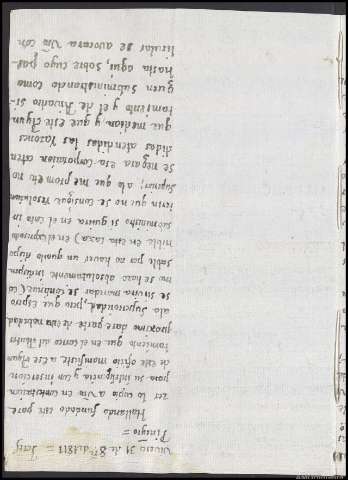 31 de 8.re de 1813 =
Piñeyro =
Hallando fundado este pare
cer lo copio a Vm en contestacion
para su inteligencia y con insercion
de este oficio manifieste a ese Ayun
tamiento que en el correo del
proximo dare parte de esta novedad
ala Superioridad, pero que espero
se sirva mandar se continue (co
mo se hace absolutamente indispen
sable por no haver un quarto dispo
nible en esta caxa) en el expresado
subministro si quiera en el inte in
terin que no se consigue resolucion
Superior: ala que me prometo no
se negara esa Corporacion aten
didas atendidas las razones
que median y que este Ayun
tamiento y el de Rivadeo si
guen subministrando como
hasta aqui, sobre cuyo par
ticular se avocara Vm con